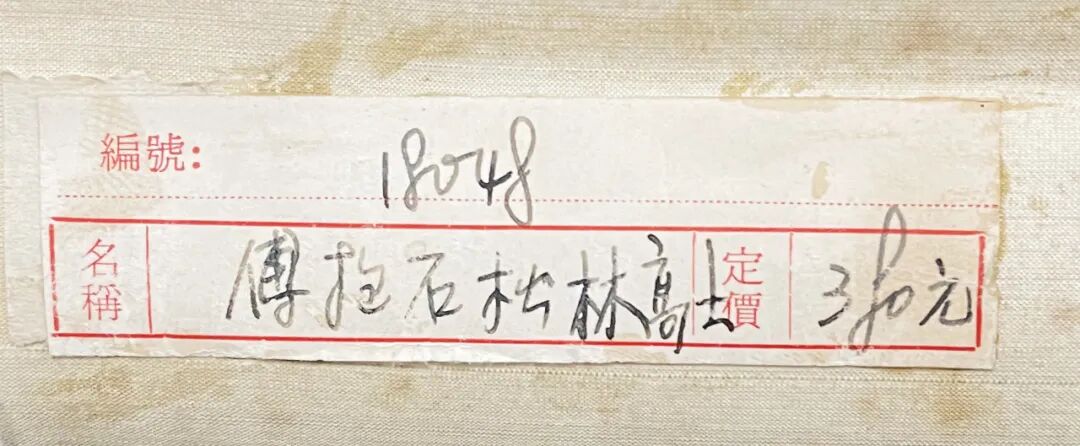 編號: 18048
名稱 傅抱石松林高士 定價 380元